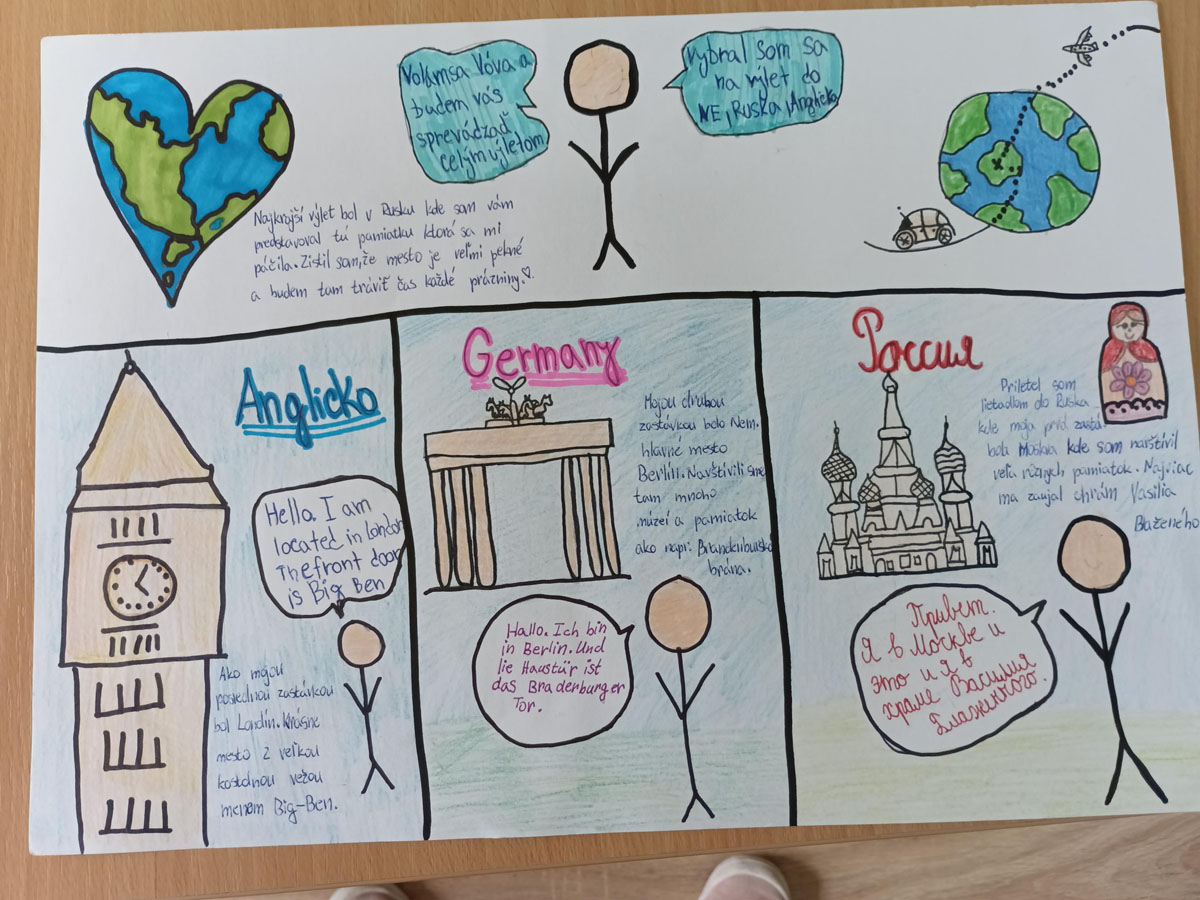 Volám sa Vóva a
budem vás
sprevádzať
celým výletom
vybral som sa
na výlet do
NE, Ruska, Anglicka
Najkrajší výlet bol v Rusku kde som vám
predstavoval tú pamiatku ktorá sa mi
páčila. Zistil som, že mesto je veľmi pekné
a budem tam tráviť čas každé prázniny.♡
Anglicko
Hello. I am
located in London
The front door
is Big Ben
Ako mojou
poslednou zastávkou
bol Londín. Krásne
mesto z veľkou
kostolnou vežou
menom Big-Ben.
Germany
Mojou druhou
zastávkou bolo Nem.
hlavné mesto
Berlín. Navštívili sme
tam mnoho
múzeí a pamiatok
ako napr. Brandenburská
brána.
Hallo. Ich bin
in Berlin. Und
die Haustür ist
das Bradenburger
Tor.
Россия
Priletel som
lietadlom do Ruska
kde moja prvá
bola Moskva kde som navštívil
veľa rôznych pamiatok. Najviac
ma zaujal chrám Vasilia
Blaženého
Привет.
Я в Москве и
это и я в
храме Василия
Блаженного.